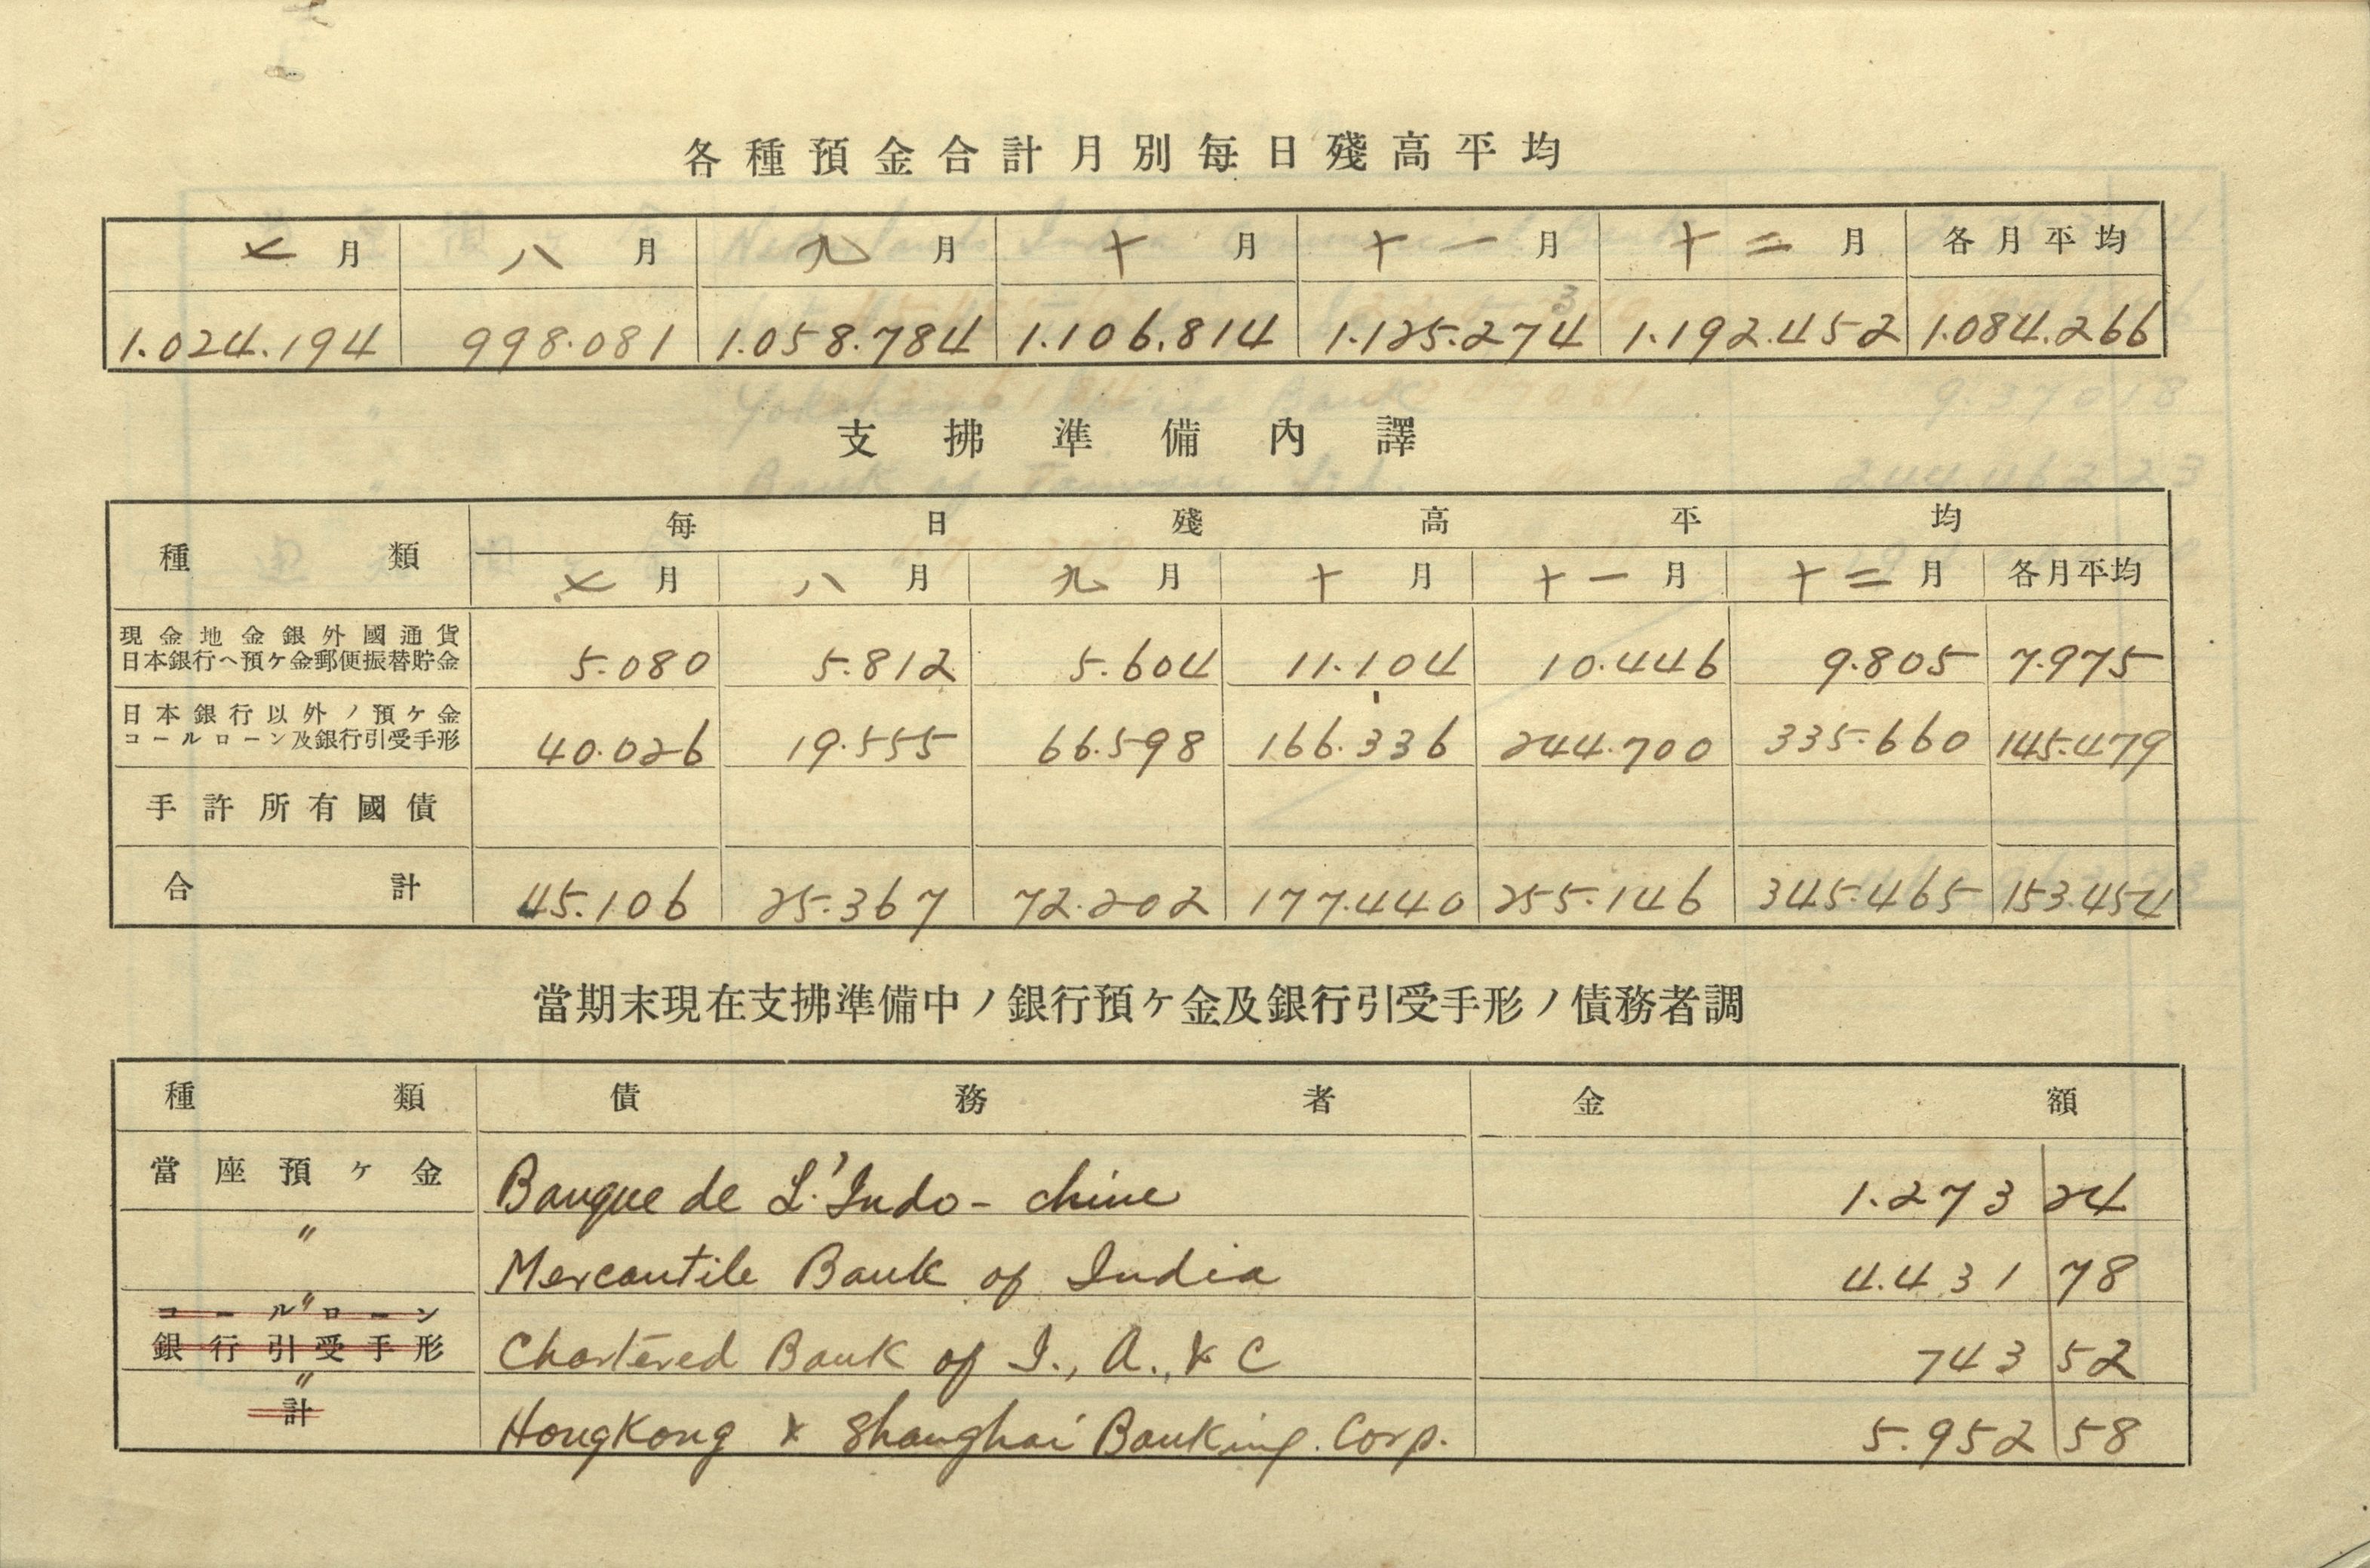 各種預金合計月別每日殘高平均
七月 八月 九月 十月 十一月 十二月 各月平均
3
1.024.194 998.081 1.058.784 1.106.814 1.125.274 1.192.452 1.084.266
支拂準備內譯
種類 每日殘高平均
七月 八月 九月 十月 十一月 十二月 各月平均
現金地金銀外國通貨
日本銀行ヘ預ケ金郵便振替貯金 5.080 5.812 5.604 11.104 10.446 9.805 7.975
日本銀行以外ノ預ケ金
コールローン及銀行引受手形 40.026 19.555 66.598 166.336 244.700 335.660 145.479
手許所有國債
合計 45.106 25.367 72.202 177.440 255.146 345.465 153.454
當期末現在支拂準備中ノ銀行預ケ金及銀行引受手形ノ債務者調
種類 債務者 金額
當座預ケ金 Banque de L'Indo-chine 1.273 24
〃 Mercantile Bank of India 4.431 78
コールローン 〃
銀行引受手形 Chartered Bank of I., A., & C 743 52
〃
計 HongKong & Shanghai Banking. Corp. 5.952 58